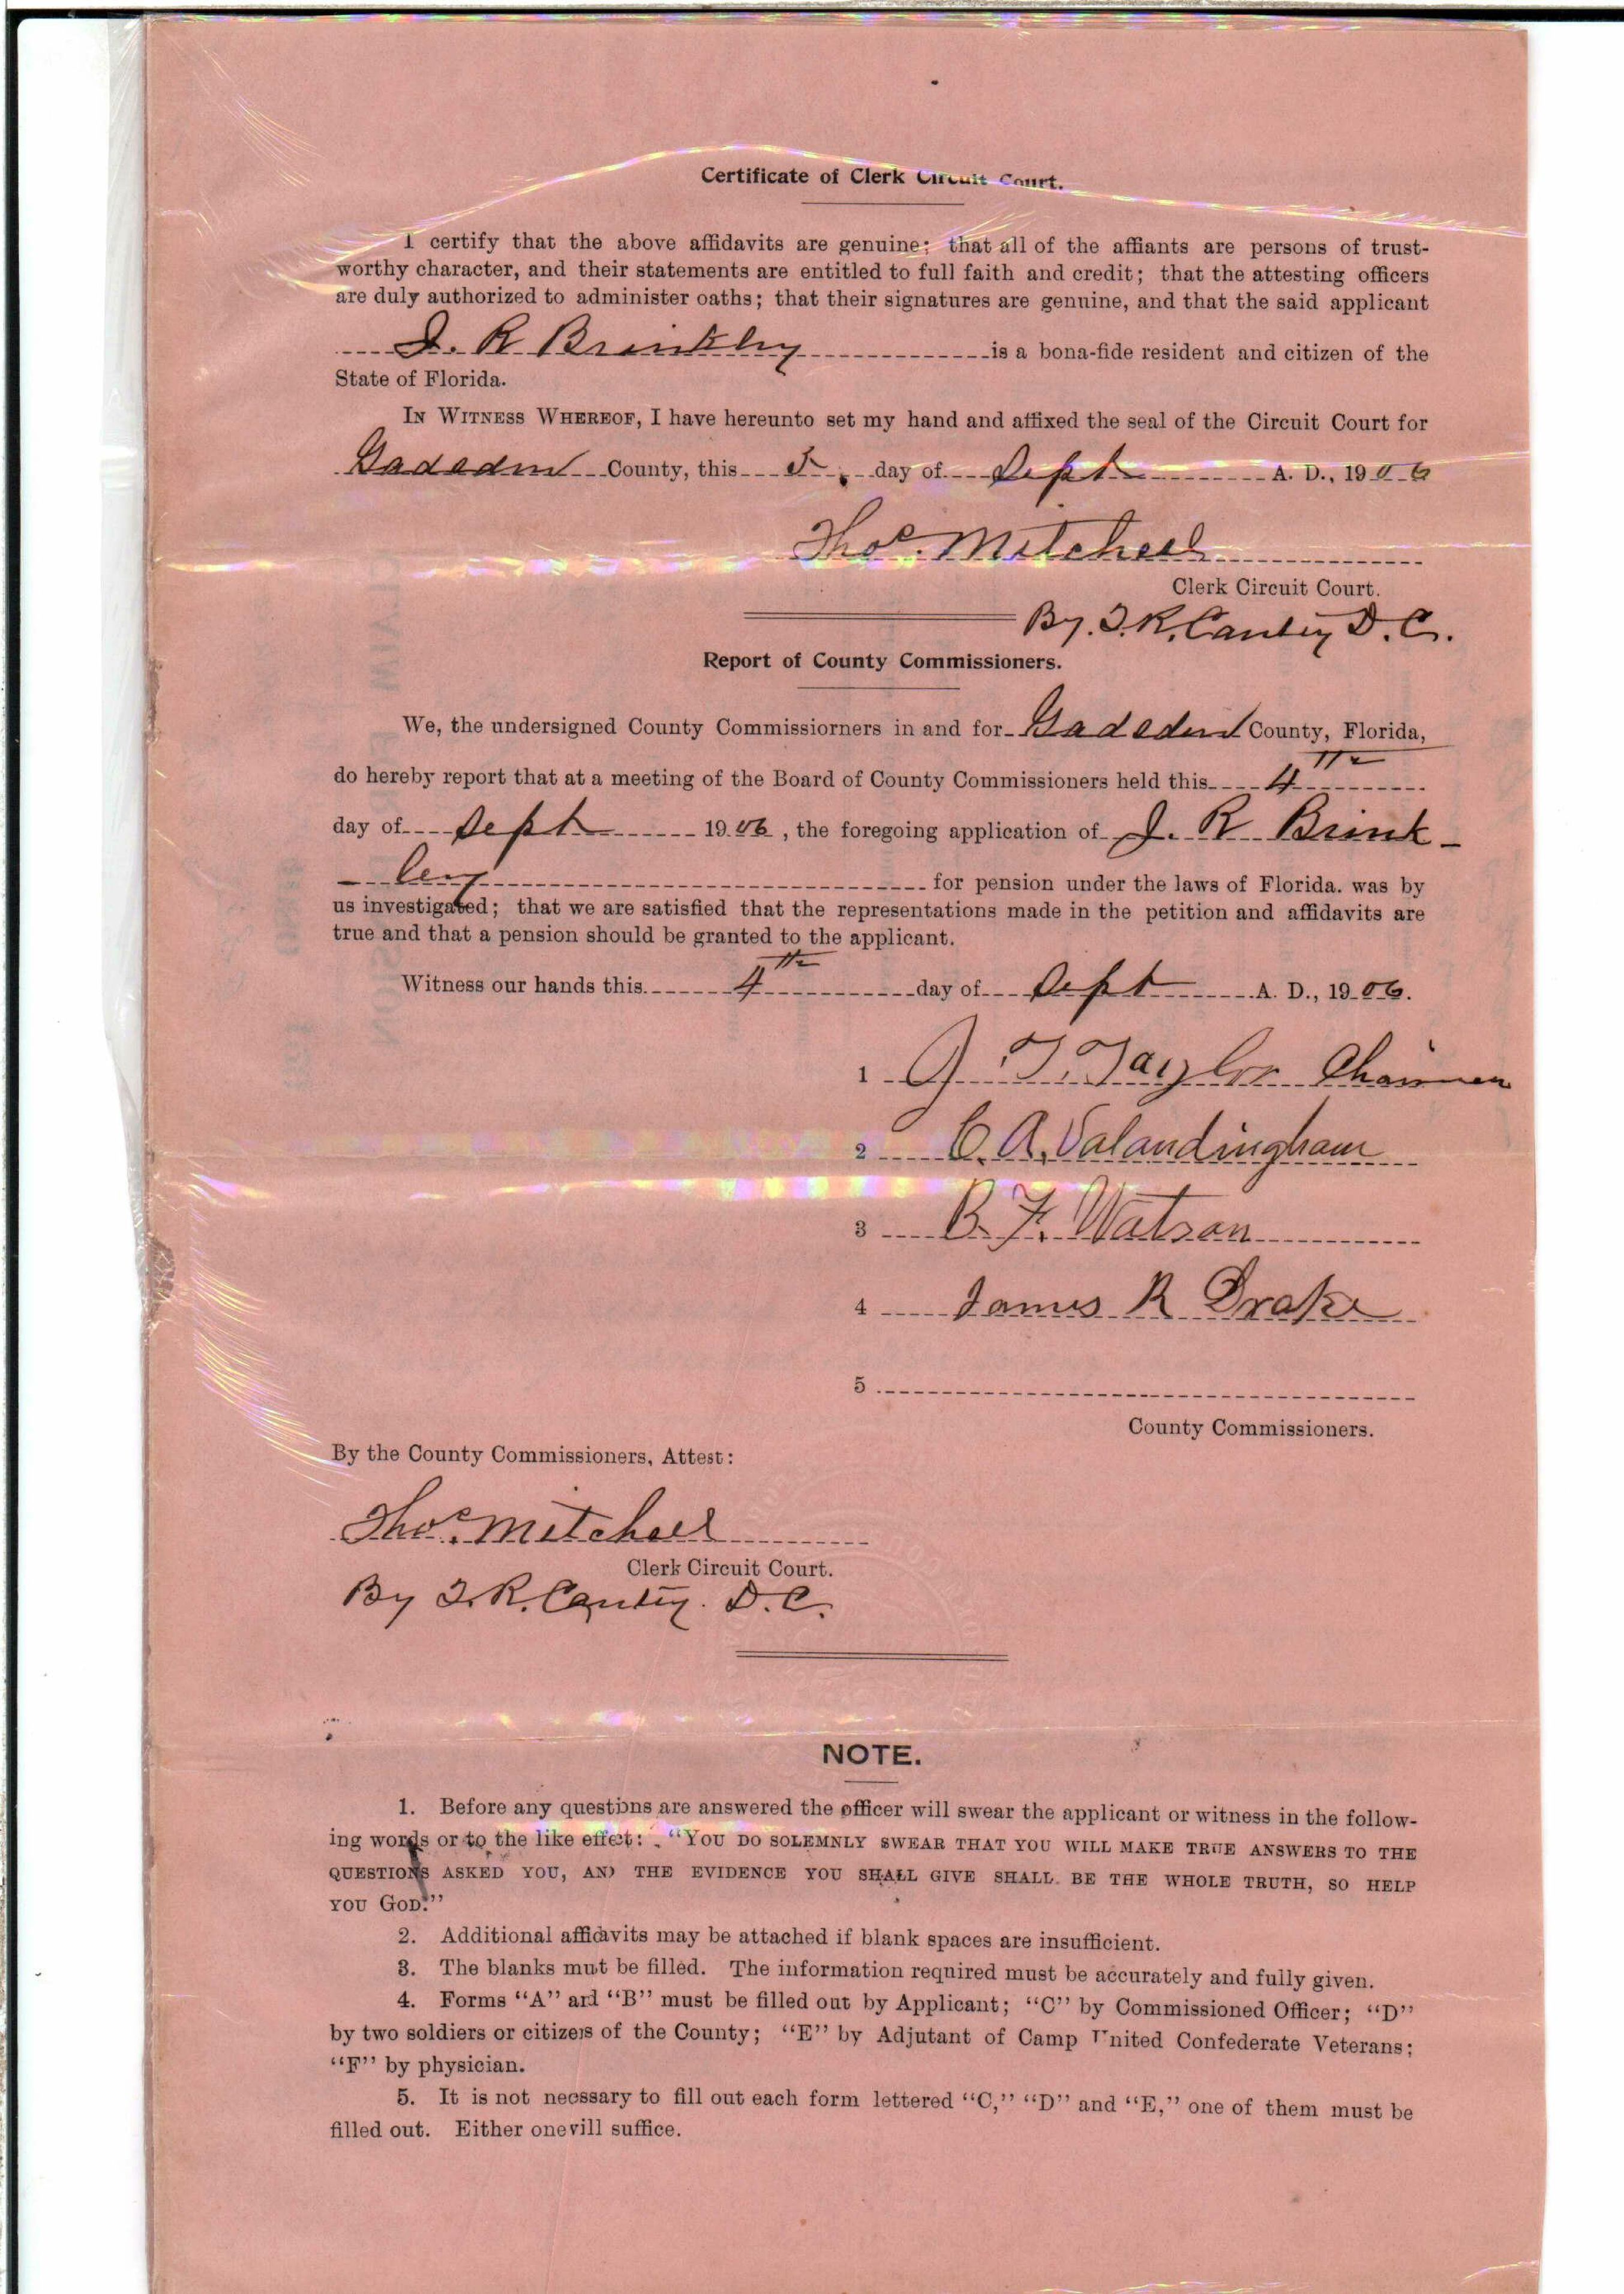 Certificate of Clerk Circuit Court.
I certify that the above affidavits are genuine; that all of the affiants are persons of trust-
worthy character, and their statements are entitled to full faith and credit; that the attesting officers
are duly authorized to administer oaths; that their signatures are genuine, and that the said applicant
J. R Brinkley is a bona-fide resident and citizen of the
State of Florida.
IN WITNESS WHEREOF, I have hereunto set my hand and affixed the seal of the Circuit Court for
Gadsden County, this 5 day of Sept A. D., 1906
Thos. Mitchell
Clerk Circuit Court.
By. T. R. Cantey D. C.
Report of County Commissioners.
We, the undersigned County Commissiorners in and for Gadsden County, Florida,
do hereby report that at a meeting of the Board of County Commissioners held this 4th
day of Sept 1906, the foregoing application of J. R Brink-
-ley for pension under the laws of Florida. was by
us investigated; that we are satisfied that the representations made in the petition and affidavits are
true and that a pension should be granted to the applicant.
Witness our hands this 4th day of Sept A. D., 1906.
1 J. T. Taylor Chairman
2 C. A. Valandingham
3 B. F. Watson
4 James R Drake
5
County Commissioners.
By the County Commissioners, Attest:
Thos. Mitchell
Clerk Circuit Court.
By T. R. Cantey. D. C.
NOTE.
1. Before any questions are answered the officer will swear the applicant or witness in the follow-
ing words or to the like effect: "YOU DO SOLEMNLY SWEAR THAT YOU WILL MAKE TRUE ANSWERS TO THE
QUESTIONS ASKED YOU, AND THE EVIDENCE YOU SHALL GIVE SHALL BE THE WHOLE TRUTH, SO HELP
YOU GOD."
2. Additional affidavits may be attached if blank spaces are insufficient.
3. The blanks mut be filled. The information required must be accurately and fully given.
4. Forms "A" and "B" must be filled out by Applicant; "C" by Commissioned Officer; "D"
by two soldiers or citizens of the County; "E" by Adjutant of Camp United Confederate Veterans;
"F" by physician.
5. It is not necessary to fill out each form lettered "C," "D" and "E," one of them must be
filled out. Either one will suffice.